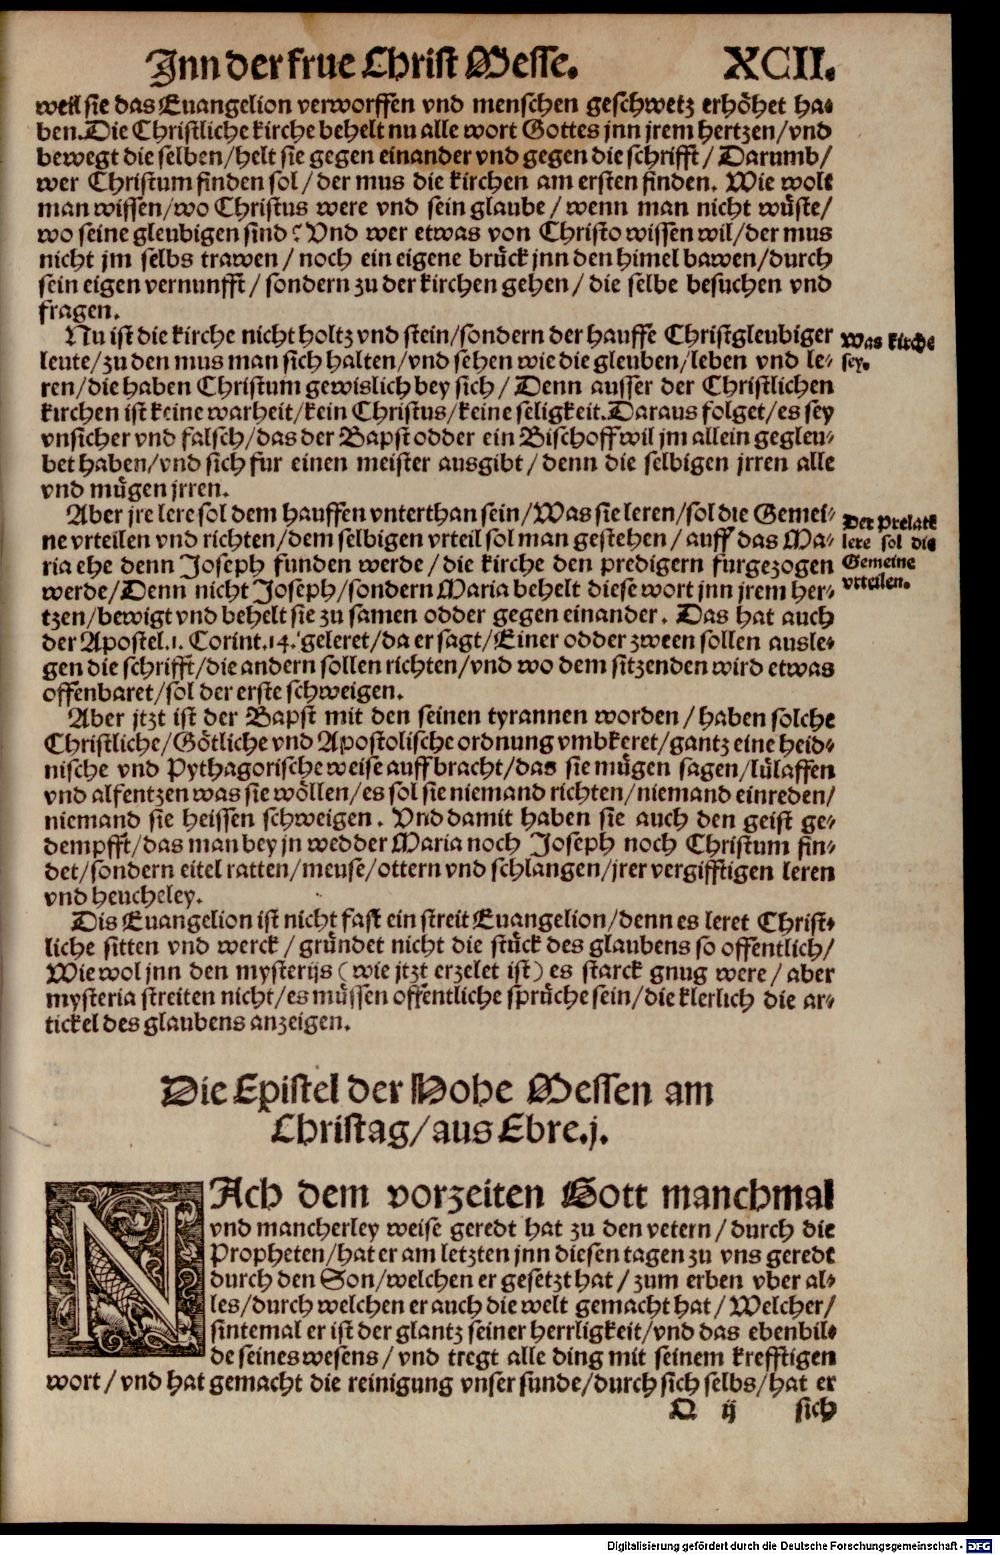 Jnn der frue Christ Messe. XCII.
weil sie das Euangelion verworffen vnd menschen geschwetz erhöhet ha-
ben. Die Christliche kirche behelt nu alle wort Gottes jnn jrem hertzen/vnd
bewegt die selben/helt sie gegen einander vnd gegen die schrifft/Darumb/
wer Christum finden sol/der mus die kirchen am ersten finden. Wie wolt
man wissen/wo Christus were vnd sein glaube/wenn man nicht wüste/
wo seine gleubigen sind? Vnd wer etwas von Christo wissen wil/der mus
nicht jm selbs trawen/noch ein eigene brück jnn den himel bawen/durch
sein eigen vernunfft/sondern zu der kirchen gehen/die selbe besuchen vnd
fragen.
Nu ist die kirche nicht holtz vnd stein/sondern der hauffe Christgleubiger
leute/zu den mus man sich halten/vnd sehen wie die gleuben/leben vnd le-
ren/die haben Christum gewislich bey sich/Denn ausser der Christlichen
kirchen ist keine warheit/kein Christus/keine seligkeit. Daraus folget/es sey
vnsicher vnd falsch/das der Bapst odder ein Bischoff wil jm allein gegleu-
bet haben/vnd sich fur einen meister ausgibt/denn die selbigen jrren alle
vnd mügen jrren.
Was kirche
sey.
Aber jre lere sol dem hauffen vnterthan sein/Was sie leren/sol die Gemei-
ne vrteilen vnd richten/dem selbigen vrteil sol man gestehen/auff das Ma-
ria ehe denn Joseph funden werde/die kirche den predigern furgezogen
werde/Denn nicht Joseph/sondern Maria behelt diese wort jnn jrem her-
tzen/bewigt vnd behelt sie zu samen odder gegen einander. Das hat auch
der Apostel.1. Corint.14. geleret/da er sagt/Einer odder zween sollen ausle-
gen die schrifft/die andern sollen richten/vnd wo dem sitzenden wird etwas
offenbaret/sol der erste schweigen.
Der Prelate
lere sol die
Gemeine
vrteilen.
Aber jtzt ist der Bapst mit den seinen tyrannen worden/haben solche
Christliche/Götliche vnd Apostolische ordnung vmbkeret/gantz eine heid-
nische vnd Pythagorische weise auffbracht/das sie mügen sagen/lülaffen
vnd alfentzen was sie wöllen/es sol sie niemand richten/niemand einreden/
niemand sie heissen schweigen. Vnd damit haben sie auch den geist ge-
dempfft/das man bey jn wedder Maria noch Joseph noch Christum fin-
det/sondern eitel ratten/meuse/ottern vnd schlangen/jrer vergifftigen leren
vnd heucheley.
Dis Euangelion ist nicht fast ein streit Euangelion/denn es leret Christ-
liche sitten vnd werck/gründet nicht die stück des glaubens so offentlich/
Wie wol jnn den mysterijs (wie jtzt erzelet ist) es starck gnug were/aber
mysteria streiten nicht/es müssen offentliche sprüche sein/die klerlich die ar-
tickel des glaubens anzeigen.
Die Epistel der Hohe Messen am
Christag/aus Ebre.j.
NAch dem vorzeiten Gott manchmal
vnd mancherley weise geredt hat zu den vetern/durch die
Propheten/hat er am letzten jnn diesen tagen zu vns geredt
durch den Son/welchen er gesetzt hat/zum erben vber al-
les/durch welchen er auch die welt gemacht hat/Welcher/
sintemal er ist der glantz seiner herrligkeit/vnd das ebenbil-
de seines wesens/vnd tregt alle ding mit seinem krefftigen
wort/vnd hat gemacht die reinigung vnser sunde/durch sich selbs/hat er
Q ij sich
Digitalisierung gefördert durch die Deutsche Forschungsgemeinschaft - DFG